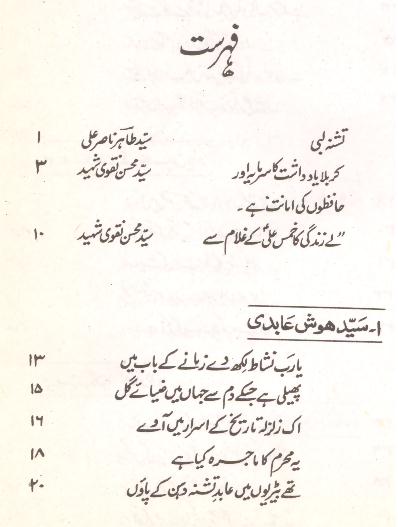 فہرست
تشنہ لبی سیّد طاہر ناصر علی ۱
کربلا یادداشت کا سرمایہ اور سیّد محسن نقوی شہید ۳
حافظوں کی امانت ہے۔
"لے زندگی کا خمس علیؑ کے غلام سے سیّد محسن نقوی شہید ۱۰
۱۔ سیّد ھوش عابدی
یارب نشاط لکھ دے زمانے کے باب میں ۱۳
پھیلی ہے جسکے دم سے جہاں میں ضیائے گل ۱۵
اک زلزلہ تاریخ کے اسرار میں آوے ۱۶
یہ محرم کا ماجرہ کیا ہے ۱۸
تھے بیڑیوں میں عابدِ تشنہ دہن کے پاؤں ۲۰